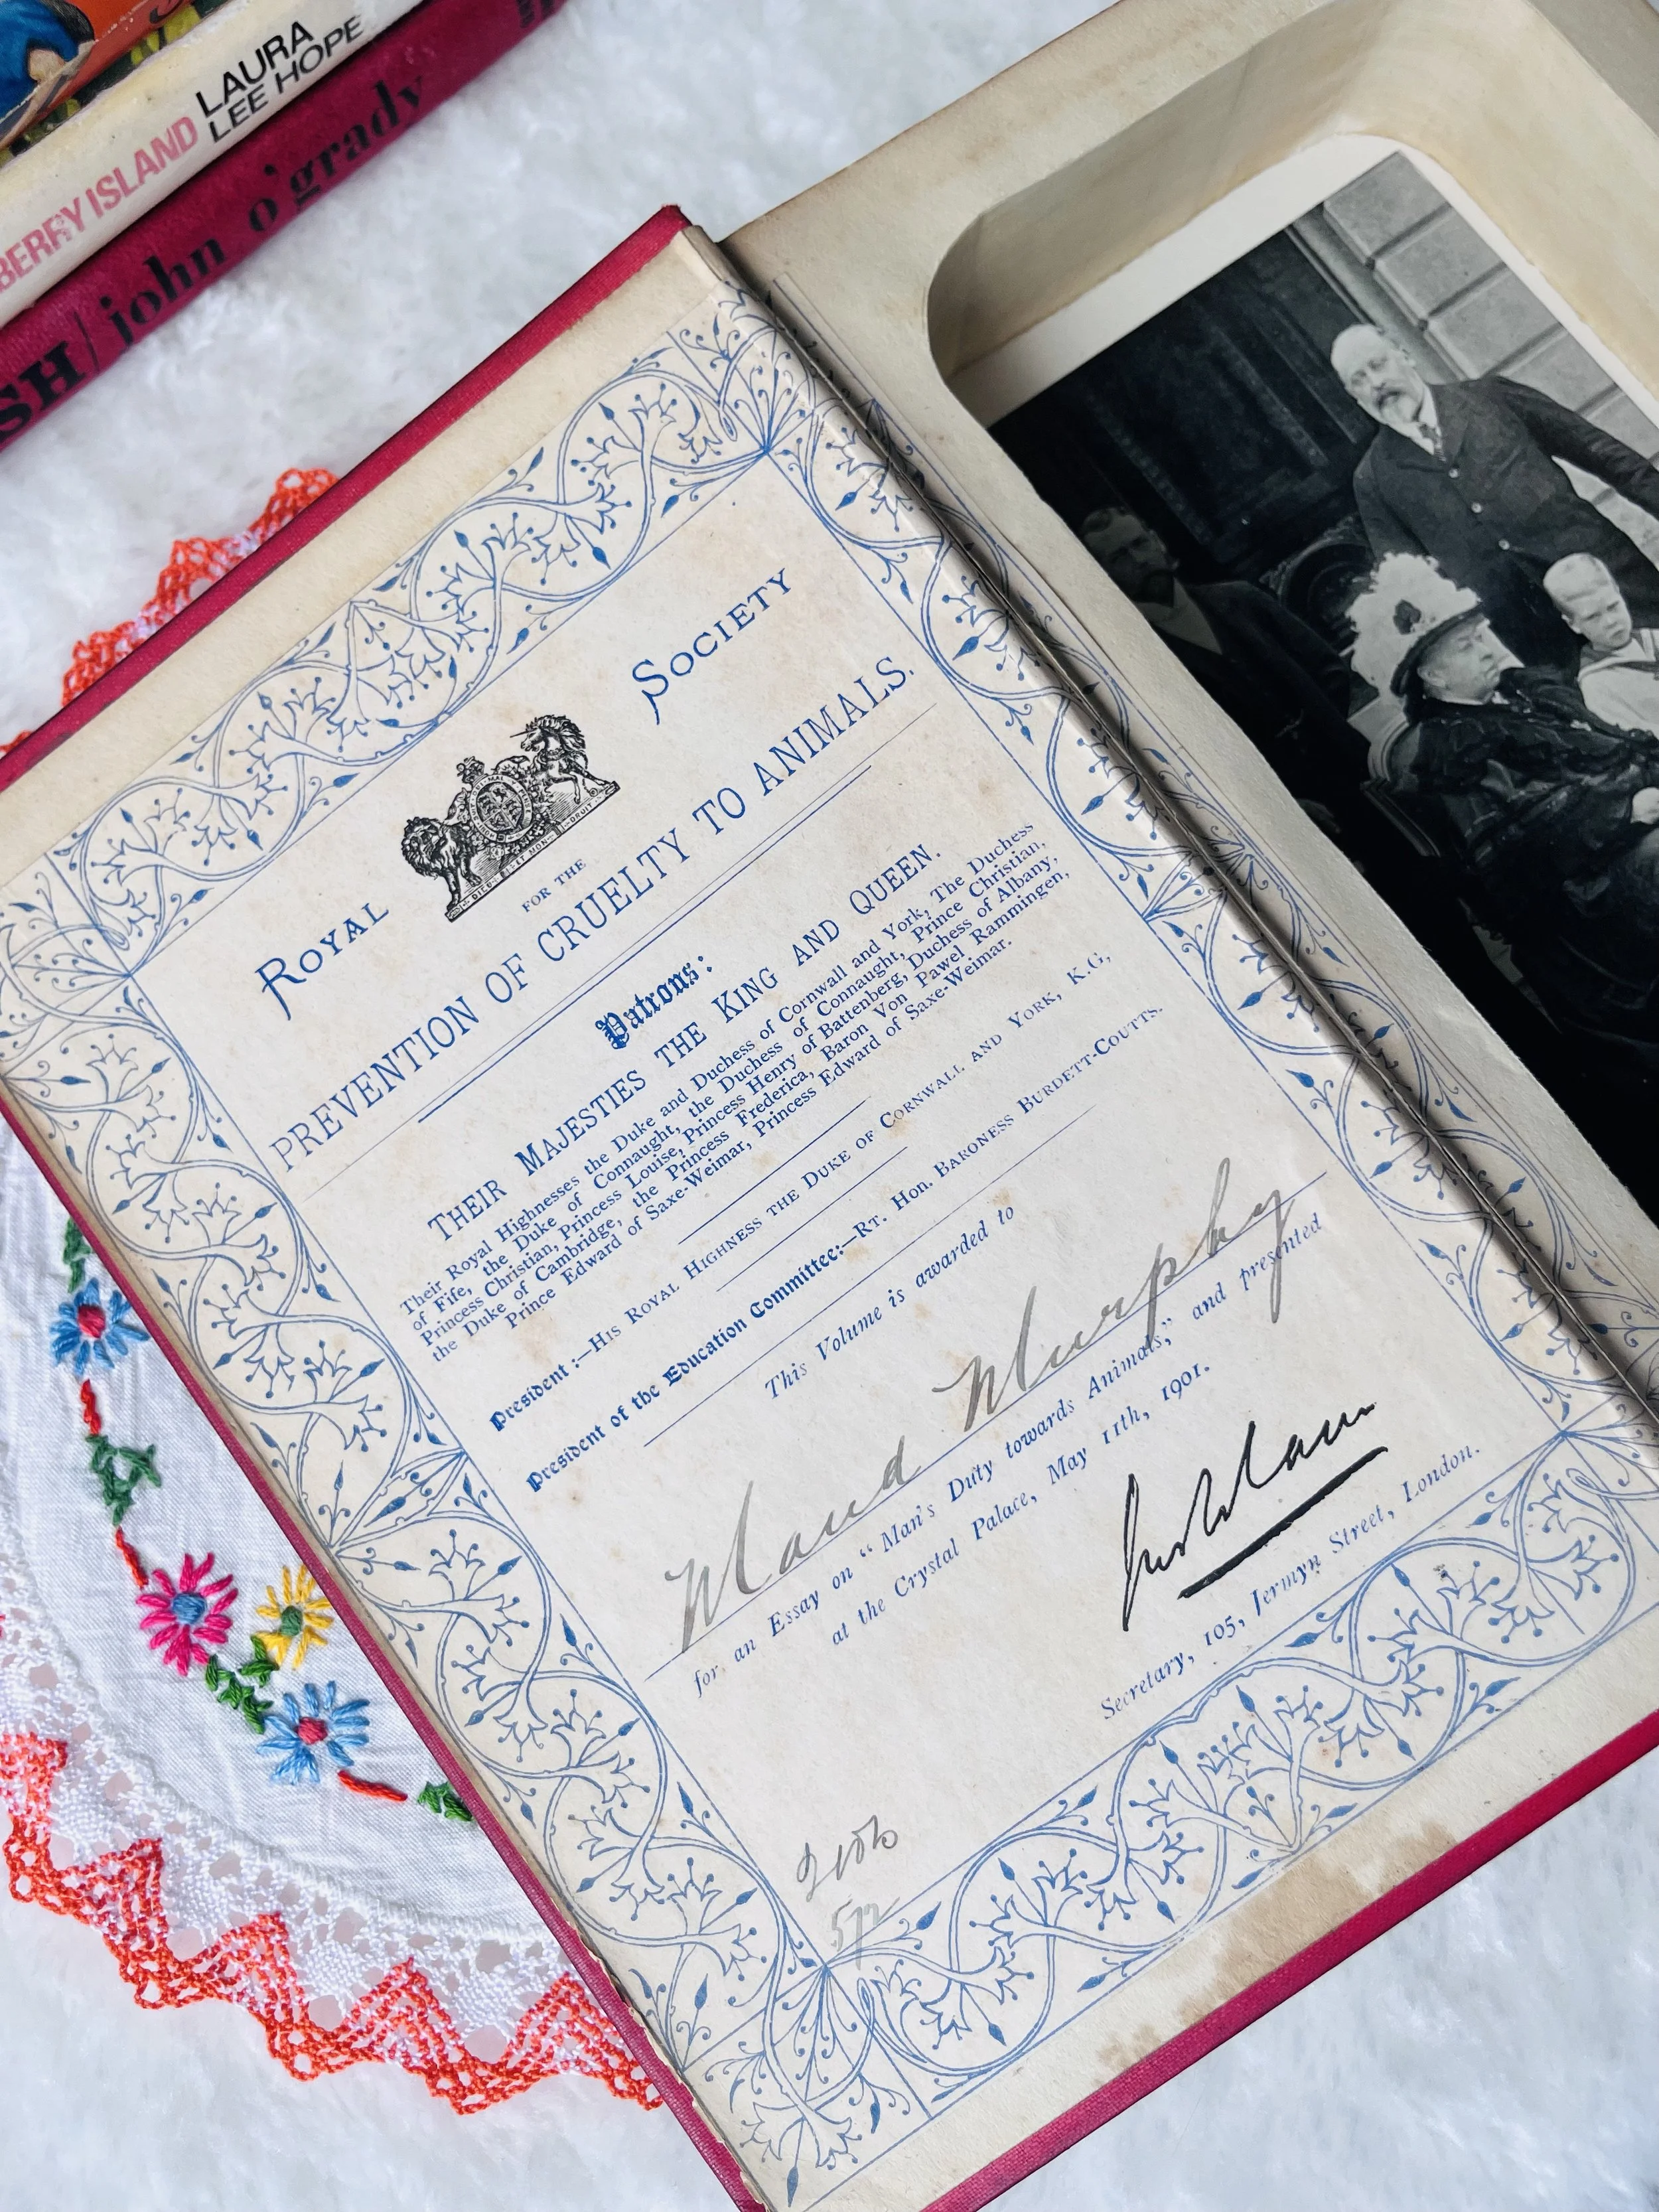 LAURA
LEE HOPE
BERRY ISLAND
SH / john o'grady
ROYAL SOCIETY
DIEU ET MON DROIT
FOR THE
PREVENTION OF CRUELTY TO ANIMALS.
Patrons:
THEIR MAJESTIES THE KING AND QUEEN.
Their Royal Highnesses the Duke and Duchess of Cornwall and York, The Duchess
of Fife, the Duke of Connaught, the Duchess of Connaught, Prince Christian,
Princess Christian, Princess Louise, Princess Henry of Battenberg, Duchess of Albany,
the Duke of Cambridge, the Princess Frederica, Baron Von Pawel Rammingen,
Prince Edward of Saxe-Weimar, Princess Edward of Saxe-Weimar.
President :—HIS ROYAL HIGHNESS THE DUKE OF CORNWALL AND YORK, K.G,
President of the Education Committee:—RT. HON. BARONESS BURDETT-COUTTS.
This Volume is awarded to
Maud Murphy
for an Essay on "Man's Duty towards Animals," and presented
at the Crystal Palace, May 11th, 1901.
Secretary, 105, Jermyn Street, London.